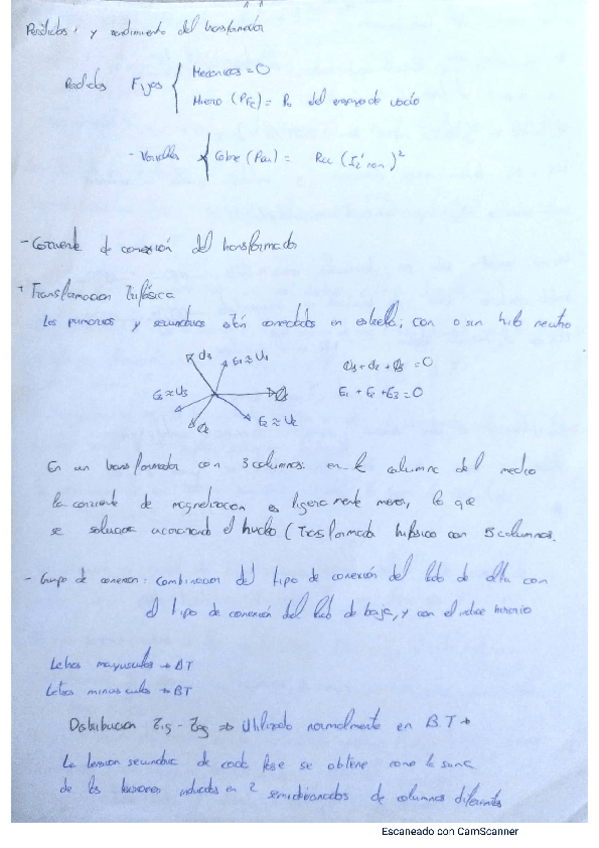 Perdidas y rendimiento del transformador
Perdidas Fijas Mecanicas = 0
Hierro (PFe) = Po del ensayo de vacío
- Variables Cobre (Pcu) = Rcc (I2'nom)²
- Corriente de conexión del transformador
+ Transformacion trifásica
Los primarios y secundarios están conectados en estrella, con o sin hilo neutro
E1 ≈ U1
E3 ≈ U3
E2 ≈ U2
E1 + E2 + E3 = 0
En un transformador con 3 columnas: en la columna del medio
la corriente de magnetizacion es ligeramente menor, lo que
se soluciona acorazando el nucleo (Trasformador trifásico con 5 columnas.
- Grupo de conexion: combinacion del tipo de conexión del lado de alta con
el tipo de conexión del lado de baja, y con el indice horario
Letras mayusculas → AT
Letras minusculas → BT
Distribucion Zig-Zag ⇒ Utilizado normalmente en B.T →
La tension secundaria de cada fase se obtiene como la suma
de las tensiones inducidas en 2 semidevanados de columnas diferentes
Escaneado con CamScanner